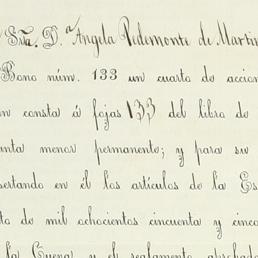 Sra. D.ª Angela Pedemonte de Martin
Bono núm. 133 un cuarto de accion
n consta á fojas 133 del libro de
nta menor permanente; y para su
sertando en él los artículos de la Es
to de mil ochocientos cincuenta y cinco
la Cueva y el reglamento aprobad